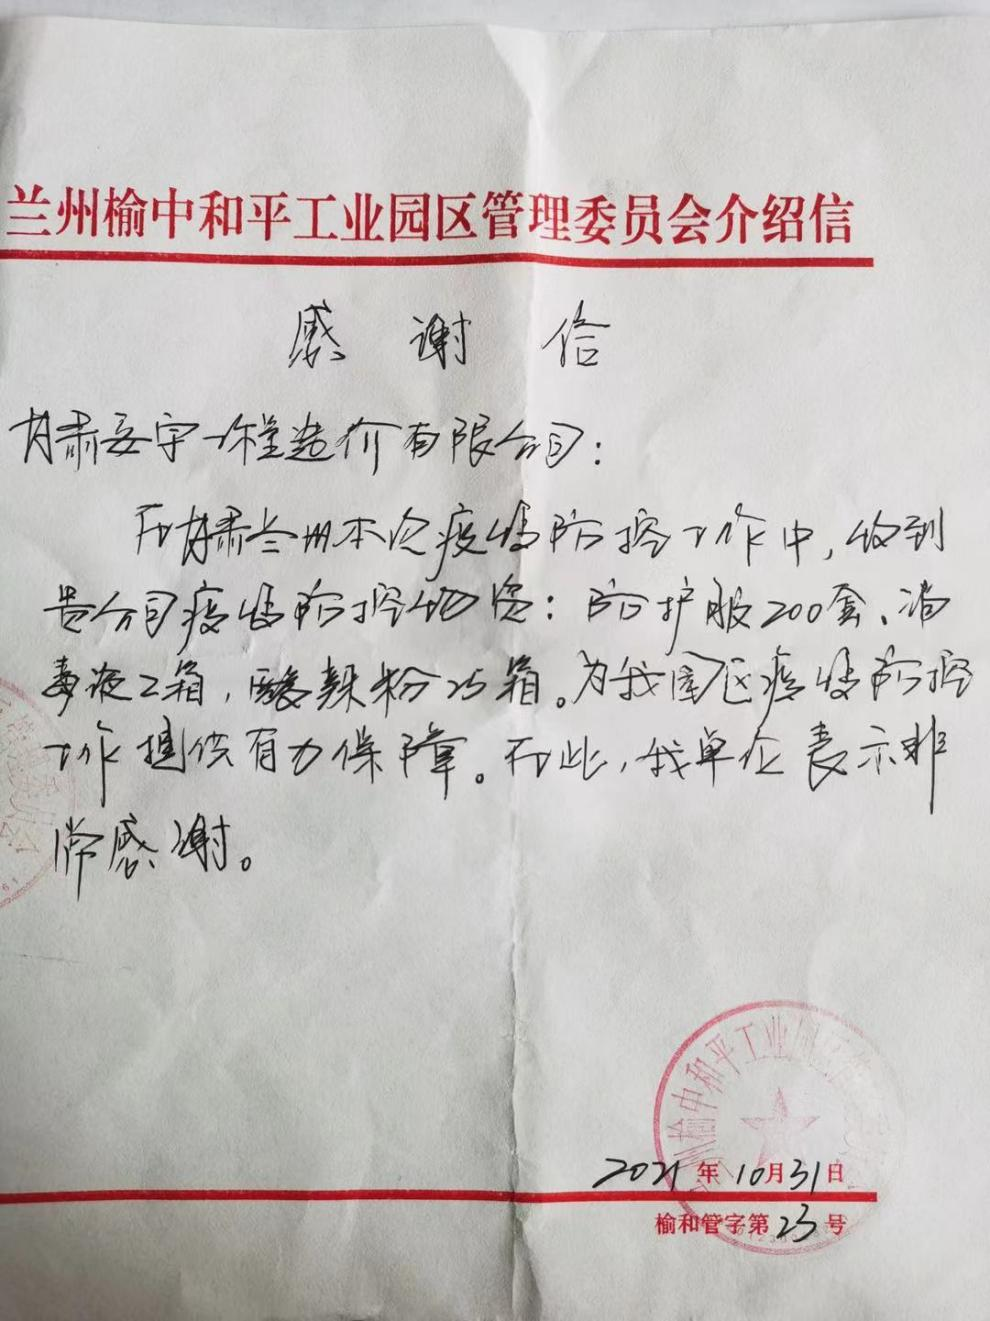 兰州榆中和平工业园区管理委员会介绍信
感谢信
甘肃安宇工程造价有限公司：
在甘肃兰州本次疫情防控工作中，收到
贵公司疫情防控物资：防护服200套、消
毒液2箱，酸辣粉25箱。为我园区疫情防控
工作提供有力保障。在此，我单位表示非
常感谢。
榆中和平工业园区管
2021年10月31日
榆和管字第23号